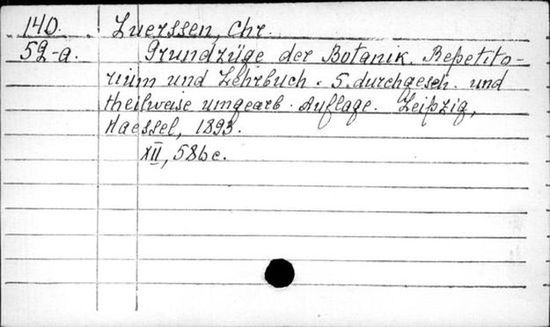 140. Luerssen, Chr.
52-a. Grundzüge der Botanik. Repetito-
rium und Lehrbuch. 5. durchgeseh. und
theilweise umgearb. Auflage. Leipzig,
Haessel, 1893.
XII, 586 c.